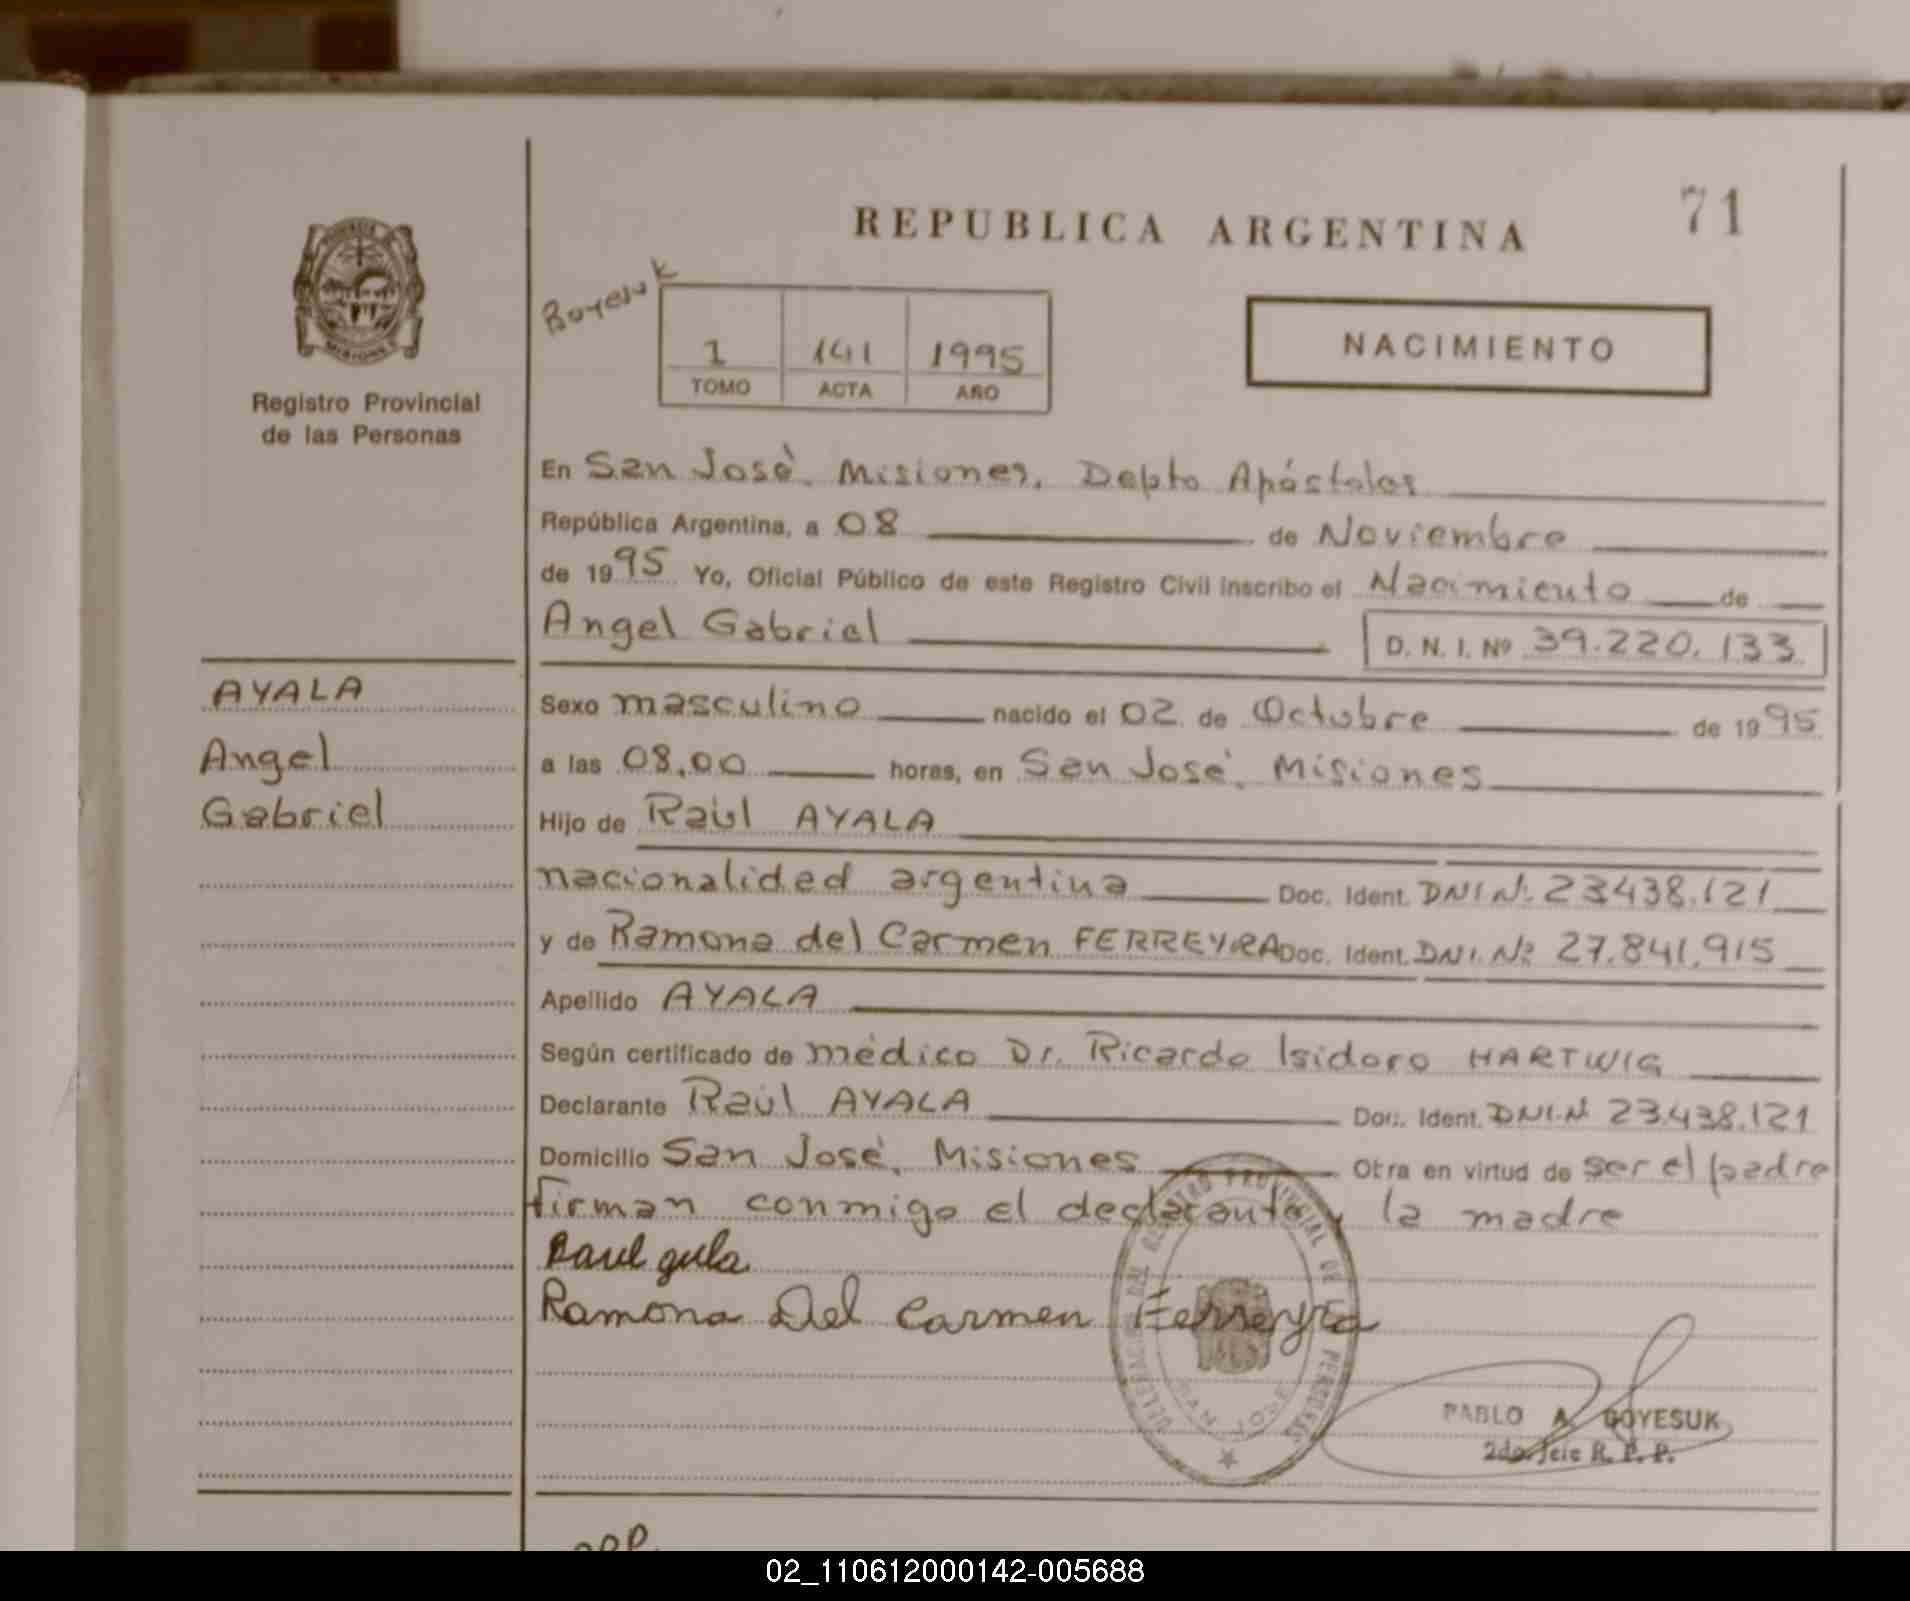 REPUBLICA ARGENTINA
71
MISIONES
Registro Provincial
de las Personas
Boyesuk
1 141 1995
TOMO ACTA AÑO
NACIMIENTO
En San José, Misiones, Depto Apóstoles
República Argentina, a 08 de Noviembre
de 1995 Yo, Oficial Público de este Registro Civil inscribo el Nacimiento de
Angel Gabriel D. N. I. Nº 39.220.133
AYALA
Angel
Gabriel
Sexo masculino nacido el 02 de Octubre de 1995
a las 08,00 horas, en San José, Misiones
Hijo de Raúl AYALA
nacionalidad argentina Doc. Ident. DNI Nº 23.438.121
y de Ramona del Carmen FERREYRA Doc. Ident. DNI. Nº 27.841.915
Apellido AYALA
Según certificado de médico Dr. Ricardo Isidoro HARTWIG
Declarante Raúl AYALA Doc. Ident. DNI.Nº 23.438.121
Domicilio San José, Misiones Otra en virtud de ser el padre
firman conmigo el declarante y la madre
Raul
Ramona Del Carmen Ferreyra
DELEGACION DEL REGISTRO PROVINCIAL DE LAS PERSONAS
SAN JOSE
PABLO A. BOYESUK
2do. Jefe R. P. P.
02_110612000142-005688